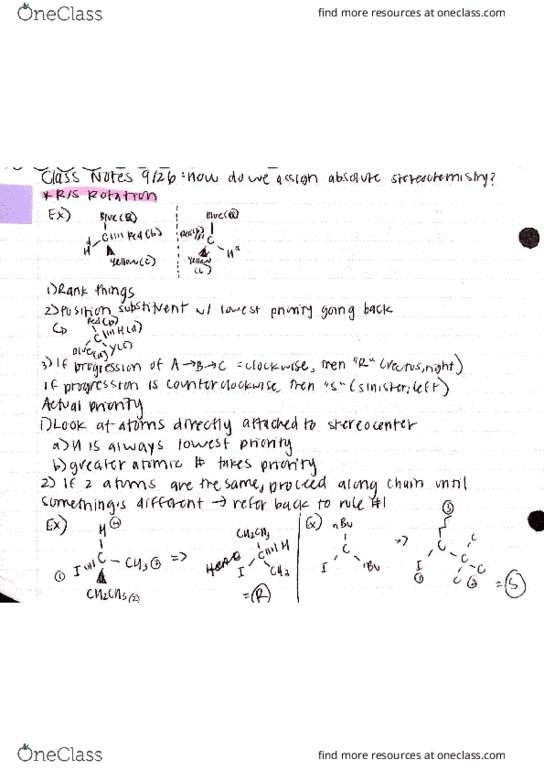 OneClass
find more resources at oneclass.com
Class Notes 9/26: How do we assign absolute stereochemistry?
* R/S Rotation
Ex) Blue(a) Blue(a)
C Red(b) Red(b) C
H d Yellow(c) Yellow H
1) Rank things
2) Position substituent w/ lowest priority going back
Red(b)
C H(d)
Blue(a) Y(c)
3) If progression of A→B→C = clockwise, then "R" (rectus, right)
If progression is counterclockwise, then "S" (sinister, left)
Actual priority
1) Look at atoms directly attached to stereocenter
a) H is always lowest priority
b) greater atomic # takes priority
2) If 2 atoms are the same, proceed along chain until
something's different → refer back to rule #1
Ex) H 4 CH2CH3 Ex) nBu 3
① I C CH3 ③ => C H C => C C
CH2CH3 (2) I CH3 I tBu I ① C ② C
= R = S
OneClass
find more resources at oneclass.com